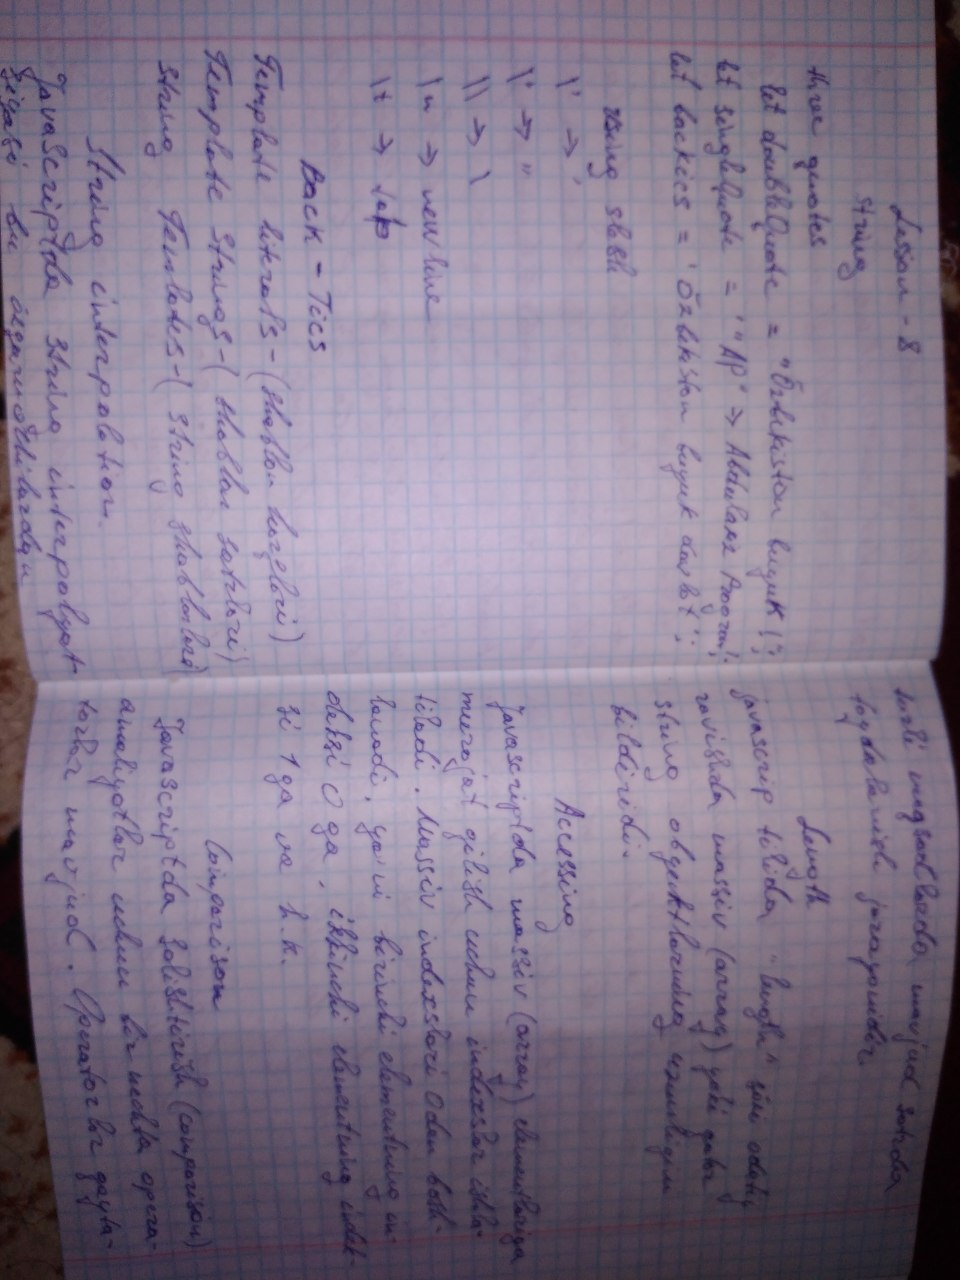 Lesson - 8
string
three quotes
let doubleQuote = "Ozbekiston buyuk!";
let singleQuote = '"AP" => Abdulaziz Programm';
let backics = `Ozbekiston buyuk davlat`;
using slash
\' → '
\" → "
\\ → \
\n → new line
\t → tab
Back - Tics
Template literals - (shablon harflari)
Template strings - (shablon satrlari)
String Templates - (string shablonlari)
String interpolation.
JavaScriptda string interpolyat-
siyasi bu ozgaruvchilardan
turli maqsadlarda mavjud satrda
foydalanish jarayonidir.
Length
javascrip tilida "length" sozi odatiy
ravishda massiv (array) yoki qator
string obyektlarining uzunligini
bildiridi.
Accessing
Javascriptda massiv (array) elementlariga
murojat qilish uchun indexslar ishla-
tiladi. Massiv indexslari 0 dan bosh-
lanadi, ya'ni birinchi elementning in-
deksi 0 ga, ikkinchi elementning indek-
si 1 ga va h.k.
Comparison
Javascriptda solishtirish (comparison)
amaliyotlar uchun bir nechta opera-
torlar mavjud. Operatorlar qayta-